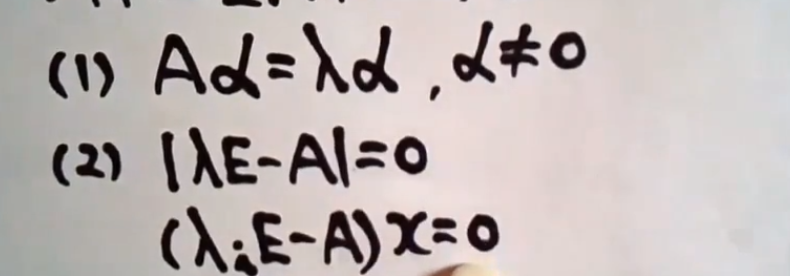 (1) Aα=λα,α≠0
(2) |λE-A|=0
(λᵢE-A)x=0